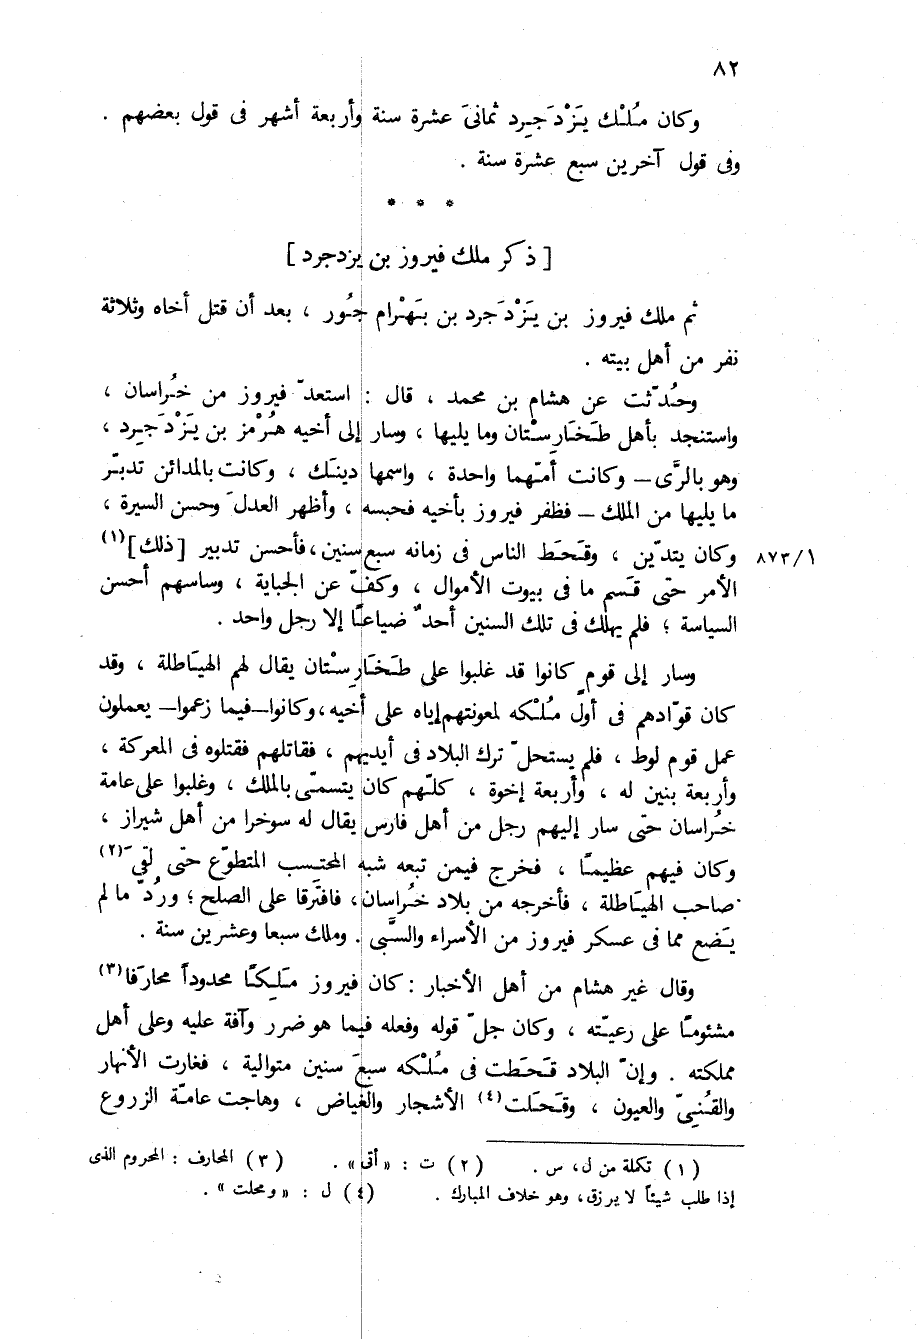 ٨٢
وكان مُلْك يَزْدَجرد ثمانىَ عشرة سنة وأربعة أشهر فى قول بعضهم .
وفى قول آخرين سبع عشرة سنة .
* * *
[ ذكر ملك فيروز بن يزدجرد ]
ثم ملك فيروز بن يَزْدَجرد بن بَهْرام جُور ، بعد أن قتل أخاه وثلاثة
نفر من أهل بيته .
وحُدّثت عن هشام بن محمد ، قال : استعدّ فيروز من خُراسان ،
واستنجد بأهل طَخَارِسْتان وما يليها ، وسار إلى أخيه هُرْمز بن يَزْدَجِرد ،
وهو بالرَّى – وكانت أمّهما واحدة ، واسمها دينَك ، وكانت بالمدائن تدبّر
ما يليها من الملك – فظفر فيروز بأخيه فحبسه ، وأظهر العدلَ وحسن السيرة ،
وكان يتديّن ، وقَحَط الناس فى زمانه سبع سنين، فأحسن تدبير [ذلك](١)
٨٧٣/١
الأمر حتّى قَسم ما فى بيوت الأموال ، وكفّ عن الجباية ، وساسهم أحسن
السياسة ؛ فلم يهلك فى تلك السنين أحدٌ ضياعًا إلا رجل واحد .
وسار إلى قوم كانوا قد غلبوا على طَخَارِسْتان يقال لهم الهيَاطلة ، وقد
كان قوّادهم فى أول مُلْكه لمعونتهم إياه على أخيه، وكانوا–فيما زعموا– يعملون
عمل قوم لوط ، فلم يستحلّ ترك البلاد فى أيديهم ، فقاتلهم فقتلوه فى المعركة ،
وأربعة بنين له ، وأربعة إخوة ، كلّهم كان يتسمّى بالملك ، وغلبوا على عامة
خُراسان حتّى سار إليهم رجل من أهل فارس يقال له سوخرا من أهل شيراز ،
وكان فيهم عظيمًا ، فخرج فيمن تبعه شبه المحتسب المتطوّع حتى لقىَ(٢)
صاحب الهيَاطلة ، فأخرجه من بلاد خُراسان، فافترقا على الصلح؛ ورُدّ ما لم
يَضع مما فى عسكر فيروز من الأسراء والسَّبى . وملك سبعا وعشرين سنة .
وقال غير هشام من أهل الأخبار : كان فيروز مَلِكًا محدوداً محارَفا(٣)
مشئومًا على رعيّته ، وكان جلّ قوله وفعله فيما هو ضرر وآفة عليه وعلى أهل
مملكته . وإنّ البلاد قَحَطت فى مُلْكه سبعَ سنين متوالية ، فغارت الأنهار
والقُنِىّ والعيون ، وقَحَلت(٤) الأشجار والغياض ، وهاجت عامّة الزروع
(١) تكملة من ل، س . (٢) ت : «أتى» . (٣) المحارف : المحروم الذى
إذا طلب شيئاً لا يرزق، وهو خلاف المبارك . (٤) ل : «ومحلت» .